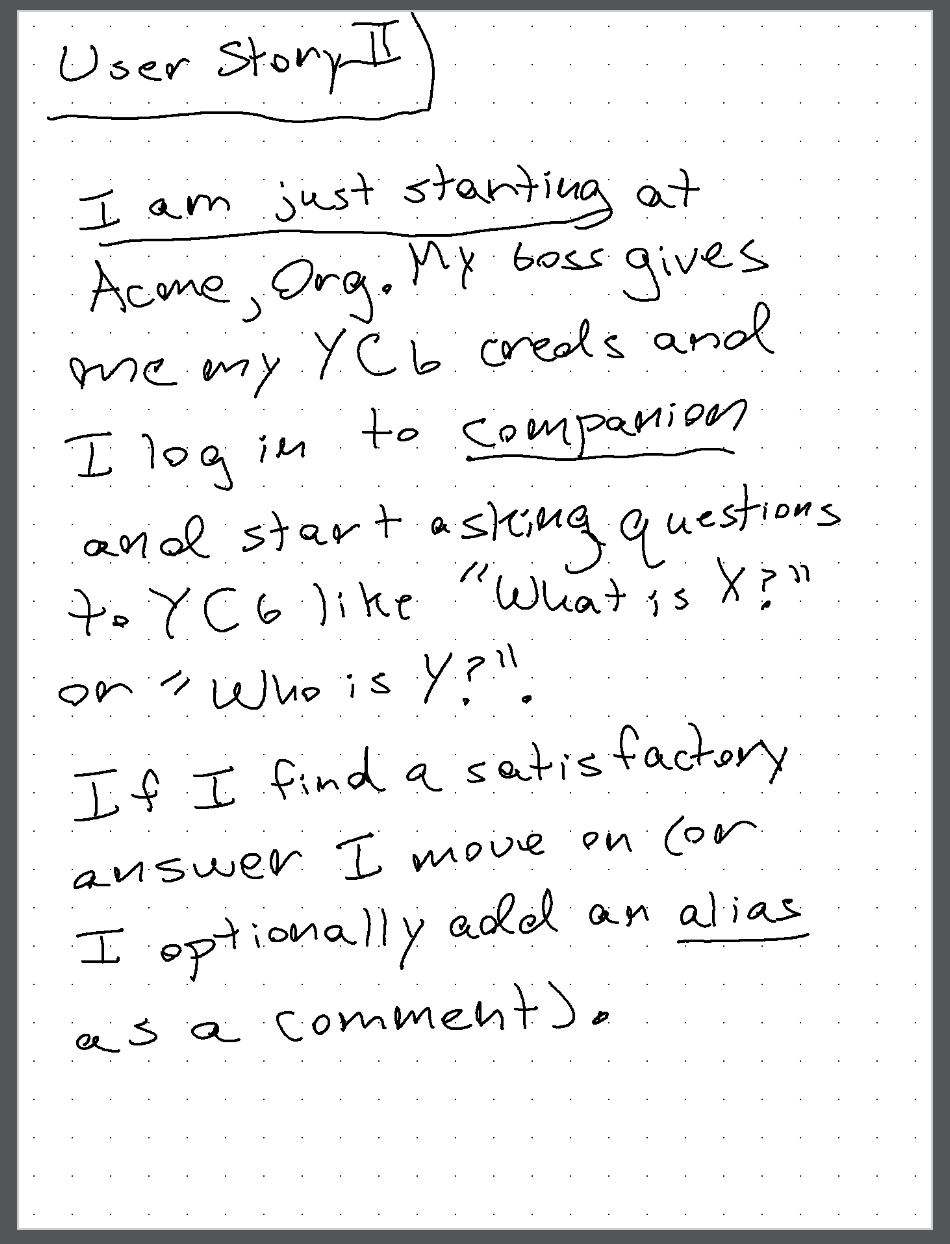 User Story II
I am just starting at
Acme, Org. My boss gives
me my YCb creds and
I log in to companion
and start asking questions
to YCb like "What is X?"
or "Who is Y?".
If I find a satisfactory
answer I move on (or
I optionally add an alias
as a comment).